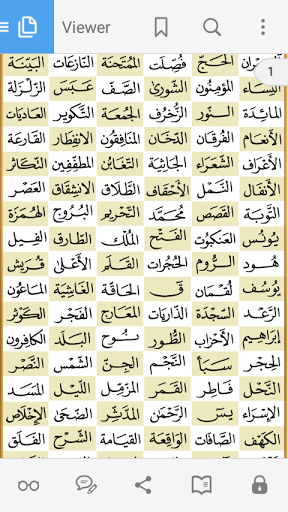 Viewer
1
آل عمران الحج فصلت الممتحنة النازعات البينة
النساء المؤمنون الشورى الصف عبس الزلزلة
المائدة النور الزخرف الجمعة التكوير العاديات
الأنعام الفرقان الدخان المنافقون الانفطار القارعة
الأعراف الشعراء الجاثية التغابن المطففين التكاثر
الأنفال النمل الأحقاف الطلاق الانشقاق العصر
التوبة القصص محمد التحريم البروج الهمزة
يونس العنكبوت الفتح الملك الطارق الفيل
هود الروم الحجرات القلم الأعلى قريش
يوسف لقمان ق الحاقة الغاشية الماعون
الرعد السجدة الذاريات المعارج الفجر الكوثر
إبراهيم الأحزاب الطور نوح البلد الكافرون
الحجر سبأ النجم الجن الشمس النصر
النحل فاطر القمر المزمل الليل المسد
الإسراء يس الرحمن المدثر الضحى الإخلاص
الكهف الصافات الواقعة القيامة الشرح الفلق